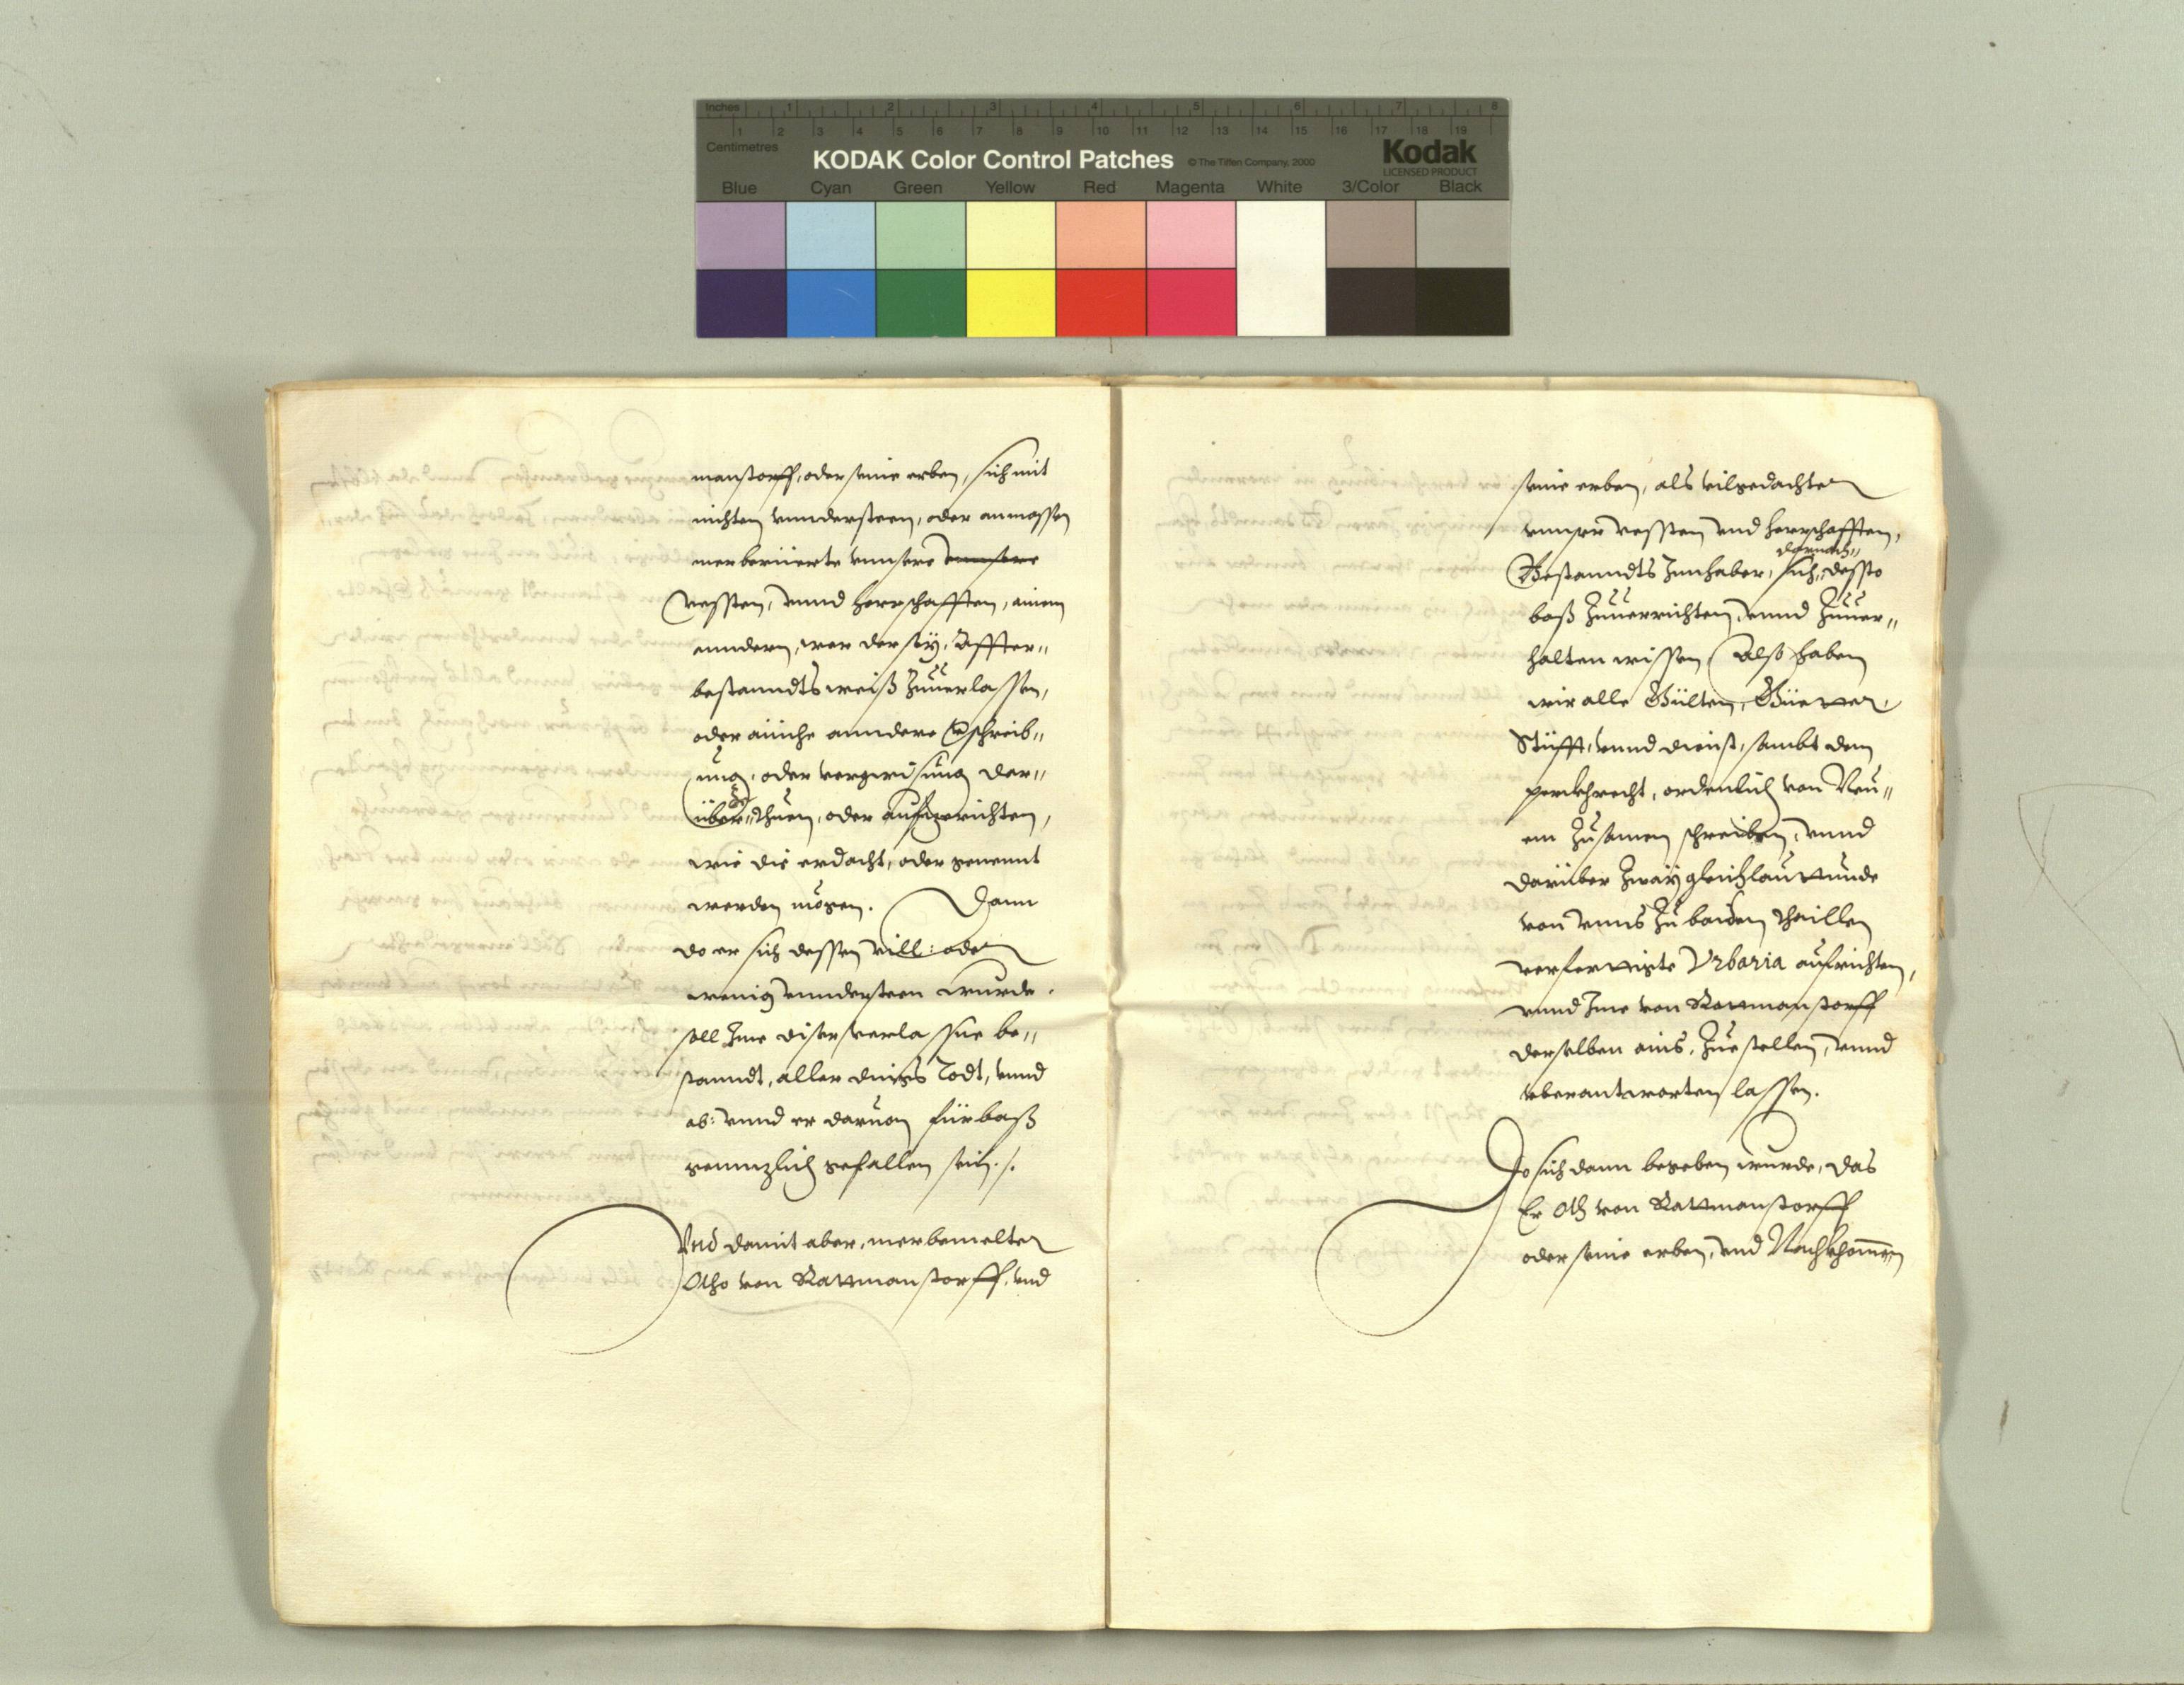 Inches 1 2 3 4 5 6 7 8
1 2 3 4 5 6 7 8 9 10 11 12 13 14 15 16 17 18 19
Centimetres
KODAK Color Control Patches © The Tiffen Company, 2000 Kodak
LICENSED PRODUCT
Blue Cyan Green Yellow Red Magenta White 3/Color Black
manstorff, oder seine erben, sich mit
nichten vnndersteen, oder anmassen
merberüerte vnnsere vnnsere
vessten, vnnd herrschafften, ainem
anndern, wer der seÿ, Affter„
bestanndts weiß Zuuerlassen,
oder ainiche anndere schreib„
ung, oder vergwisung dar„
über Zethuen, oder aufzerichten,
wie die erdacht, oder genennt
werden mögen. Dann
do er sich dessen vill: oder
wenig vnndersteen wurde.
soll Ime diser verlassne be„
standt, aller dings Todt, vnnd
ab: vnnd er daruon fürbaß
genntzlich gefallen sein ./.
Und damit aber, merbemelter
Otho von Rattmanstorff, vnd
seine erben, als vilgedachter
vnnser vessten vnd herrschafften,
darnach„
Bestanndts Innhaber, sich, dessto
baß Zuuerrichten, vnnd Zuuer„
halten wissen Also haben
wir alle Gülten, Güetter,
Stüfft, vnnd dienst, sambt dem
perckhrecht, ordenlich von Neu„
em Zusamen schreiben, vnnd
darüber Zwaÿ gleichlauttunde
von vnns Zu baiden thaillen
verferttigte Vrbaria aufrichten,
vnnd Ime von Rattmanstorff
derselben ains, Zuestellen, vnnd
vberantworten lassen.
Do sich dann begeben wurde, das
Er Oth von Rattmanstorff
oder seine erben, vnd Nachkhomen